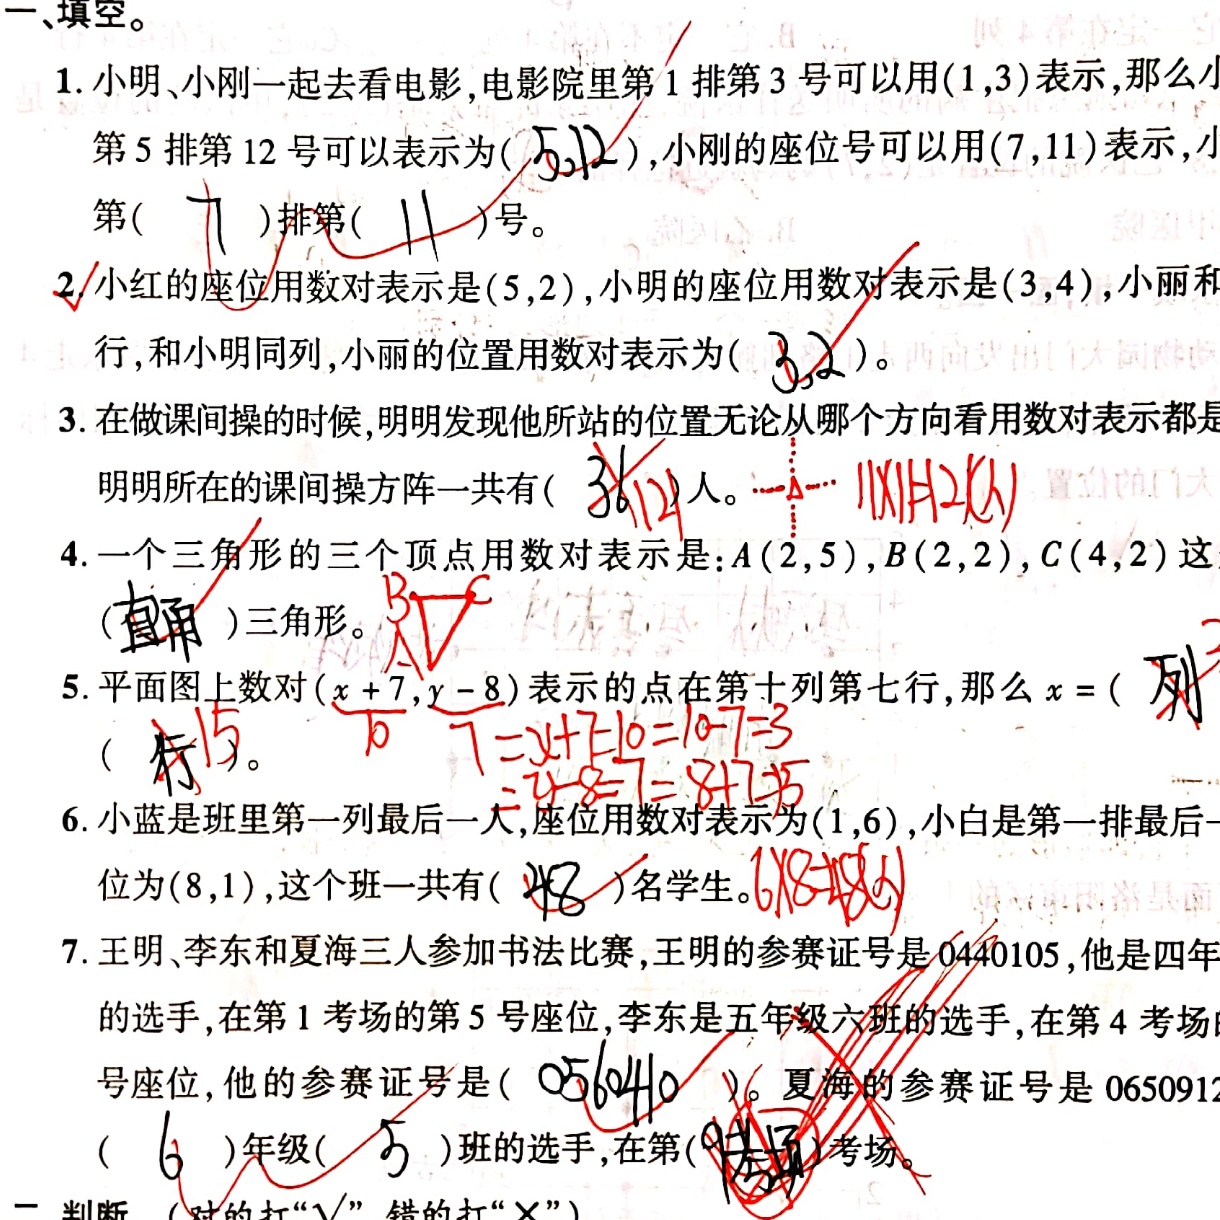 一、填空。
1. 小明、小刚一起去看电影,电影院里第1排第3号可以用(1,3)表示,那么小
第5排第12号可以表示为( 5,12 ),小刚的座位号可以用(7,11)表示,小
第( 7 )排第( 11 )号。
2. 小红的座位用数对表示是(5,2),小明的座位用数对表示是(3,4),小丽和
行,和小明同列,小丽的位置用数对表示为( 3,2 )。
3. 在做课间操的时候,明明发现他所站的位置无论从哪个方向看用数对表示都是
明明所在的课间操方阵一共有( 36 121 )人。 11×11=121(人)
4. 一个三角形的三个顶点用数对表示是:A(2,5),B(2,2),C(4,2)这
( 直角 )三角形。 B C A
5. 平面图上数对(x+7,y-8)表示的点在第十列第七行,那么x=( 列
( 行 15 )。 10 7 =x+7=10=10-7=3
=y-8=7=8+7=15
6. 小蓝是班里第一列最后一人,座位用数对表示为(1,6),小白是第一排最后一
位为(8,1),这个班一共有( 48 )名学生。 6×8=48(人)
7. 王明、李东和夏海三人参加书法比赛,王明的参赛证号是0440105,他是四年
的选手,在第1考场的第5号座位,李东是五年级六班的选手,在第4考场
号座位,他的参赛证号是( 0560410 )。夏海的参赛证号是0650912
( 6 )年级( 5 )班的选手,在第( )考场。
二、判断。(对的打“√”,错的打“×”)